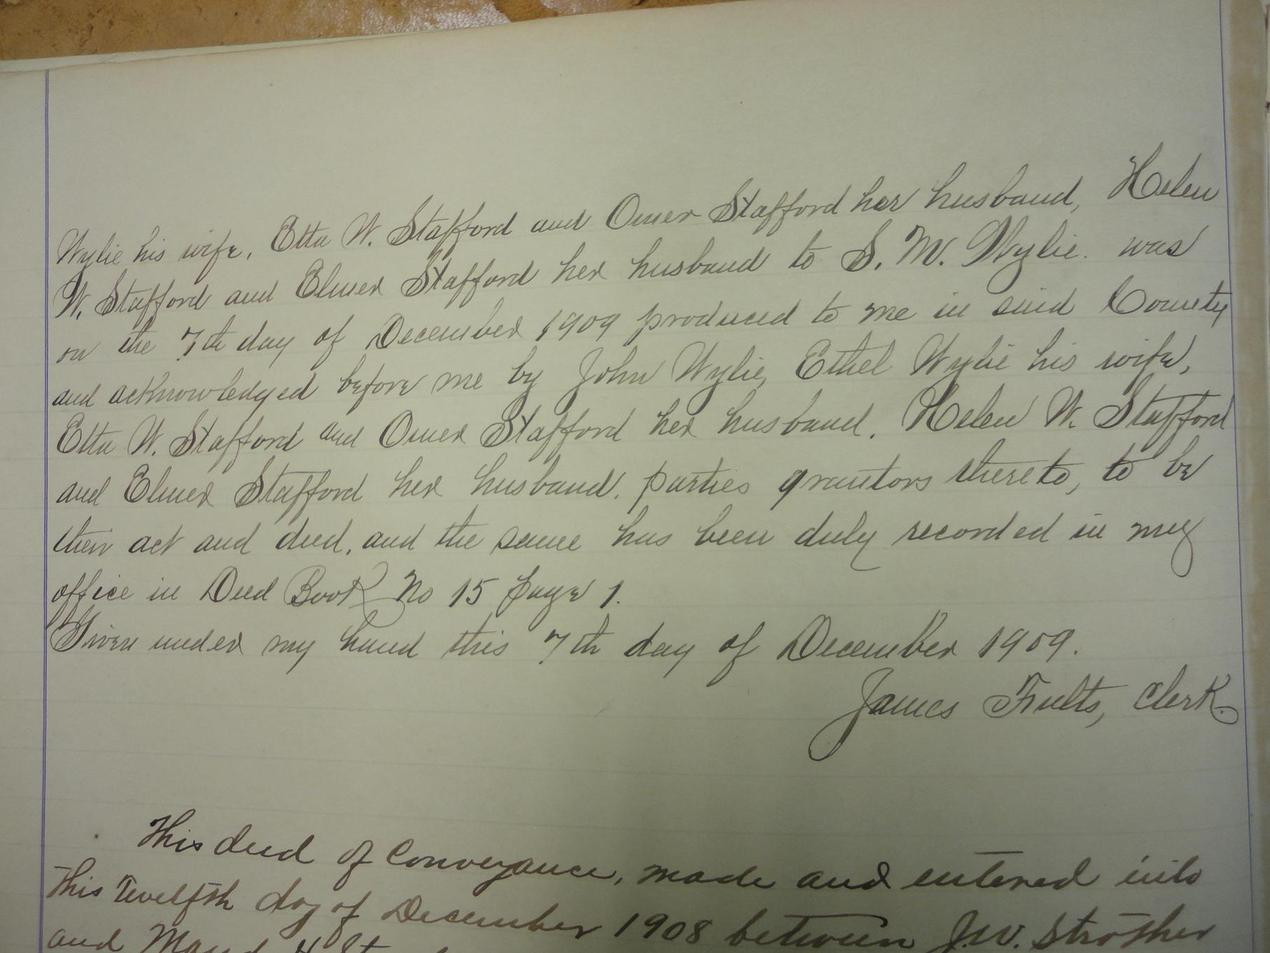 Wylie his wife, Etta W. Stafford and Omer Stafford her husband, Helen
W. Stafford and Elmer Stafford her husband to S. M. Wylie. was
on the 7th day of December 1909 produced to me in said County
and acknowledged before me by John Wylie, Ethel Wylie his wife,
Etta W. Stafford and Omer Stafford her husband. Helen W. Stafford
and Elmer Stafford her husband. parties grantors thereto, to be
their act and deed, and the same has been duly recorded in my
office in Deed Book No 15 page 1.
Given under my hand this 7th day of December 1909.
James Fults, Clerk.
This deed of Conveyance, made and entered into
this Twelfth day of December 1908 between J.W. Strother
and